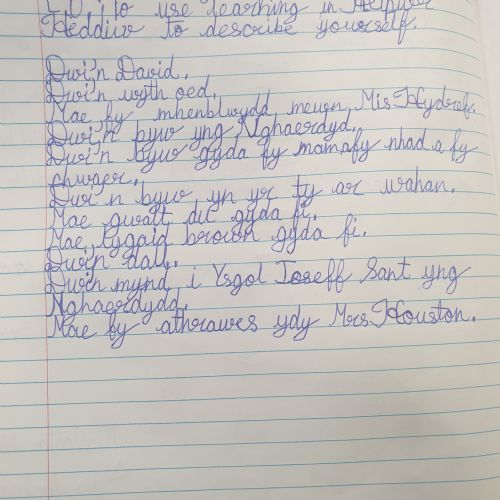 L.O. : to use learning in Helpwr
Heddiw to describe yourself.
Dwi'n David.
Dwi'n wyth oed.
Mae fy mhenblwydd mewn Mis Hydref.
Dwi'n byw yng Nghaerdyd.
Dwi'n byw gyda fy mamafy nhad a fy
chwaer.
Dwi'n byw yn yr ty ar wahan.
Mae gwallt du gyda fi.
Mae lygaid brown gyda fi.
Dwi'n dal.
Dwi'n mynd i Ysgol Joseff Sant yng
Nghaerdydd.
Mae fy athrawes ydy Mrs Houston.